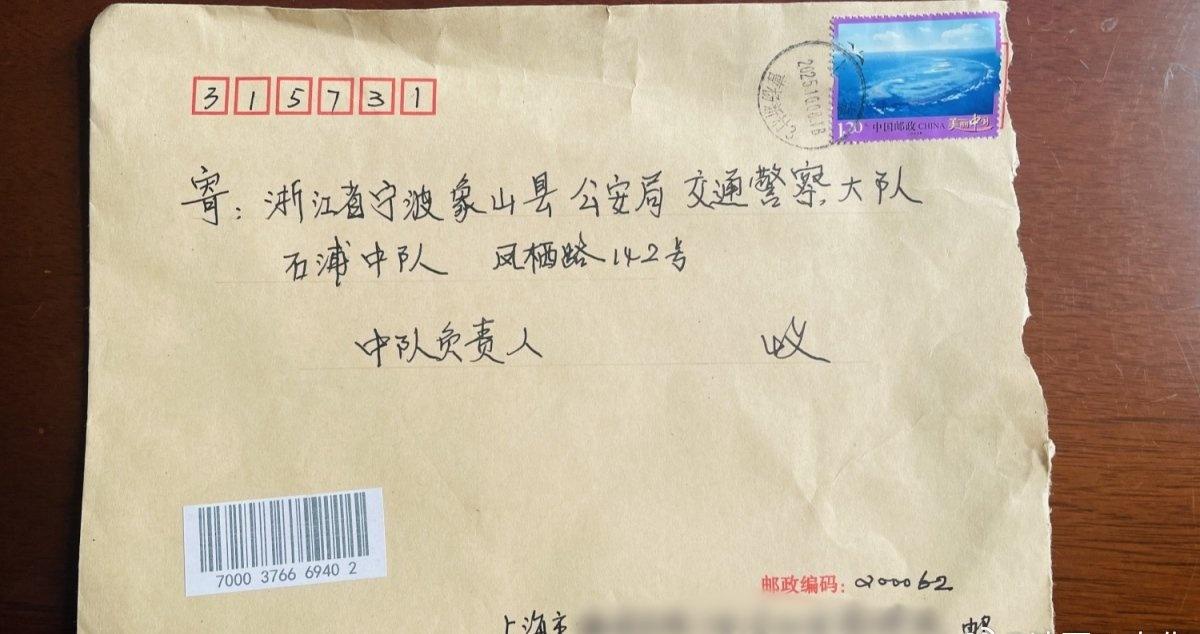 315731
2025.10.08.18
上海
1.20 中国邮政 CHINA 美丽中国
寄：浙江省宁波象山县公安局交通警察大队
石浦中队 凤栖路142号
中队负责人 收
7000 3766 6940 2
邮政编码：200062
上海市 邮